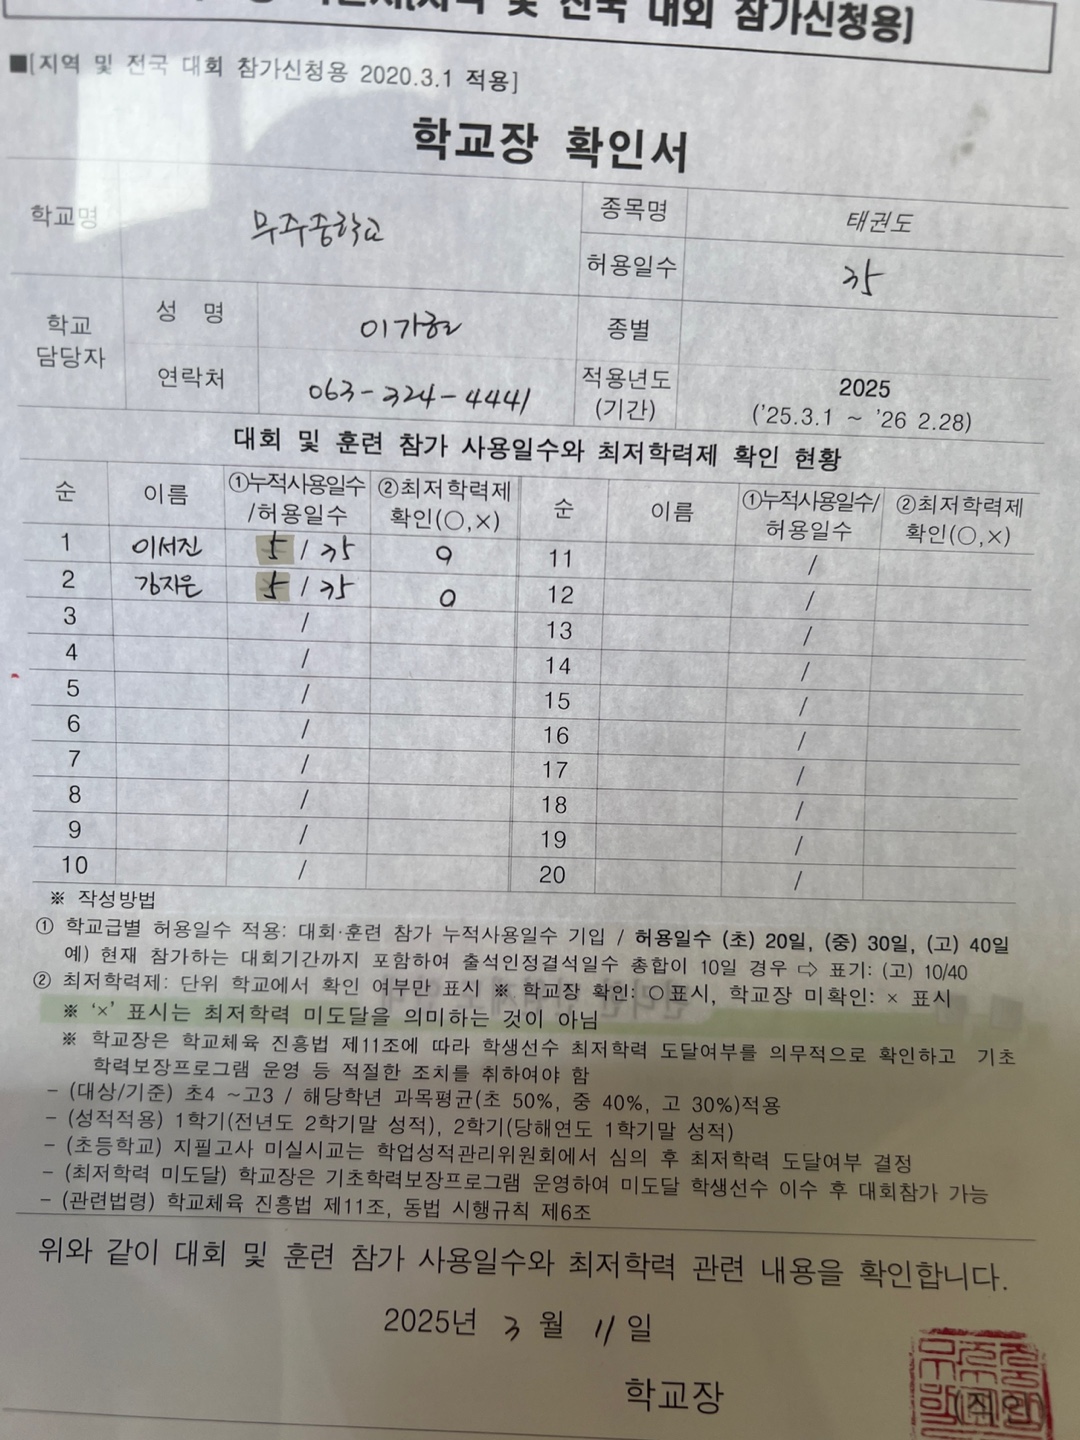 및 전국 대회 참가신청용]
■[지역 및 전국 대회 참가신청용 2020.3.1 적용]
학교장 확인서
학교명 무주중학교 종목명 태권도
허용일수 35
학교 담당자 성 명 이가현 종별
연락처 063-324-4441 적용년도 (기간) 2025 ('25.3.1 ~ '26 2.28)
대회 및 훈련 참가 사용일수와 최저학력제 확인 현황
순 이름 ①누적사용일수/허용일수 ②최저학력제 확인(○,×) 순 이름 ①누적사용일수/허용일수 ②최저학력제 확인(○,×)
1 이서진 5 / 35 ○ 11 /
2 김자은 5 / 35 ○ 12 /
3 / 13 /
4 / 14 /
5 / 15 /
6 / 16 /
7 / 17 /
8 / 18 /
9 / 19 /
10 / 20 /
※ 작성방법
① 학교급별 허용일수 적용: 대회·훈련 참가 누적사용일수 기입 / 허용일수 (초) 20일, (중) 30일, (고) 40일
예) 현재 참가하는 대회기간까지 포함하여 출석인정결석일수 총합이 10일 경우 ⇨ 표기: (고) 10/40
② 최저학력제: 단위 학교에서 확인 여부만 표시 ※ 학교장 확인: ○표시, 학교장 미확인: × 표시
※ '×' 표시는 최저학력 미도달을 의미하는 것이 아님
※ 학교장은 학교체육 진흥법 제11조에 따라 학생선수 최저학력 도달여부를 의무적으로 확인하고 기초
학력보장프로그램 운영 등 적절한 조치를 취하여야 함
- (대상/기준) 초4 ~고3 / 해당학년 과목평균(초 50%, 중 40%, 고 30%)적용
- (성적적용) 1학기(전년도 2학기말 성적), 2학기(당해연도 1학기말 성적)
- (초등학교) 지필고사 미실시교는 학업성적관리위원회에서 심의 후 최저학력 도달여부 결정
- (최저학력 미도달) 학교장은 기초학력보장프로그램 운영하여 미도달 학생선수 이수 후 대회참가 가능
- (관련법령) 학교체육 진흥법 제11조, 동법 시행규칙 제6조
위와 같이 대회 및 훈련 참가 사용일수와 최저학력 관련 내용을 확인합니다.
2025년 3 월 11 일
학교장 (직인)